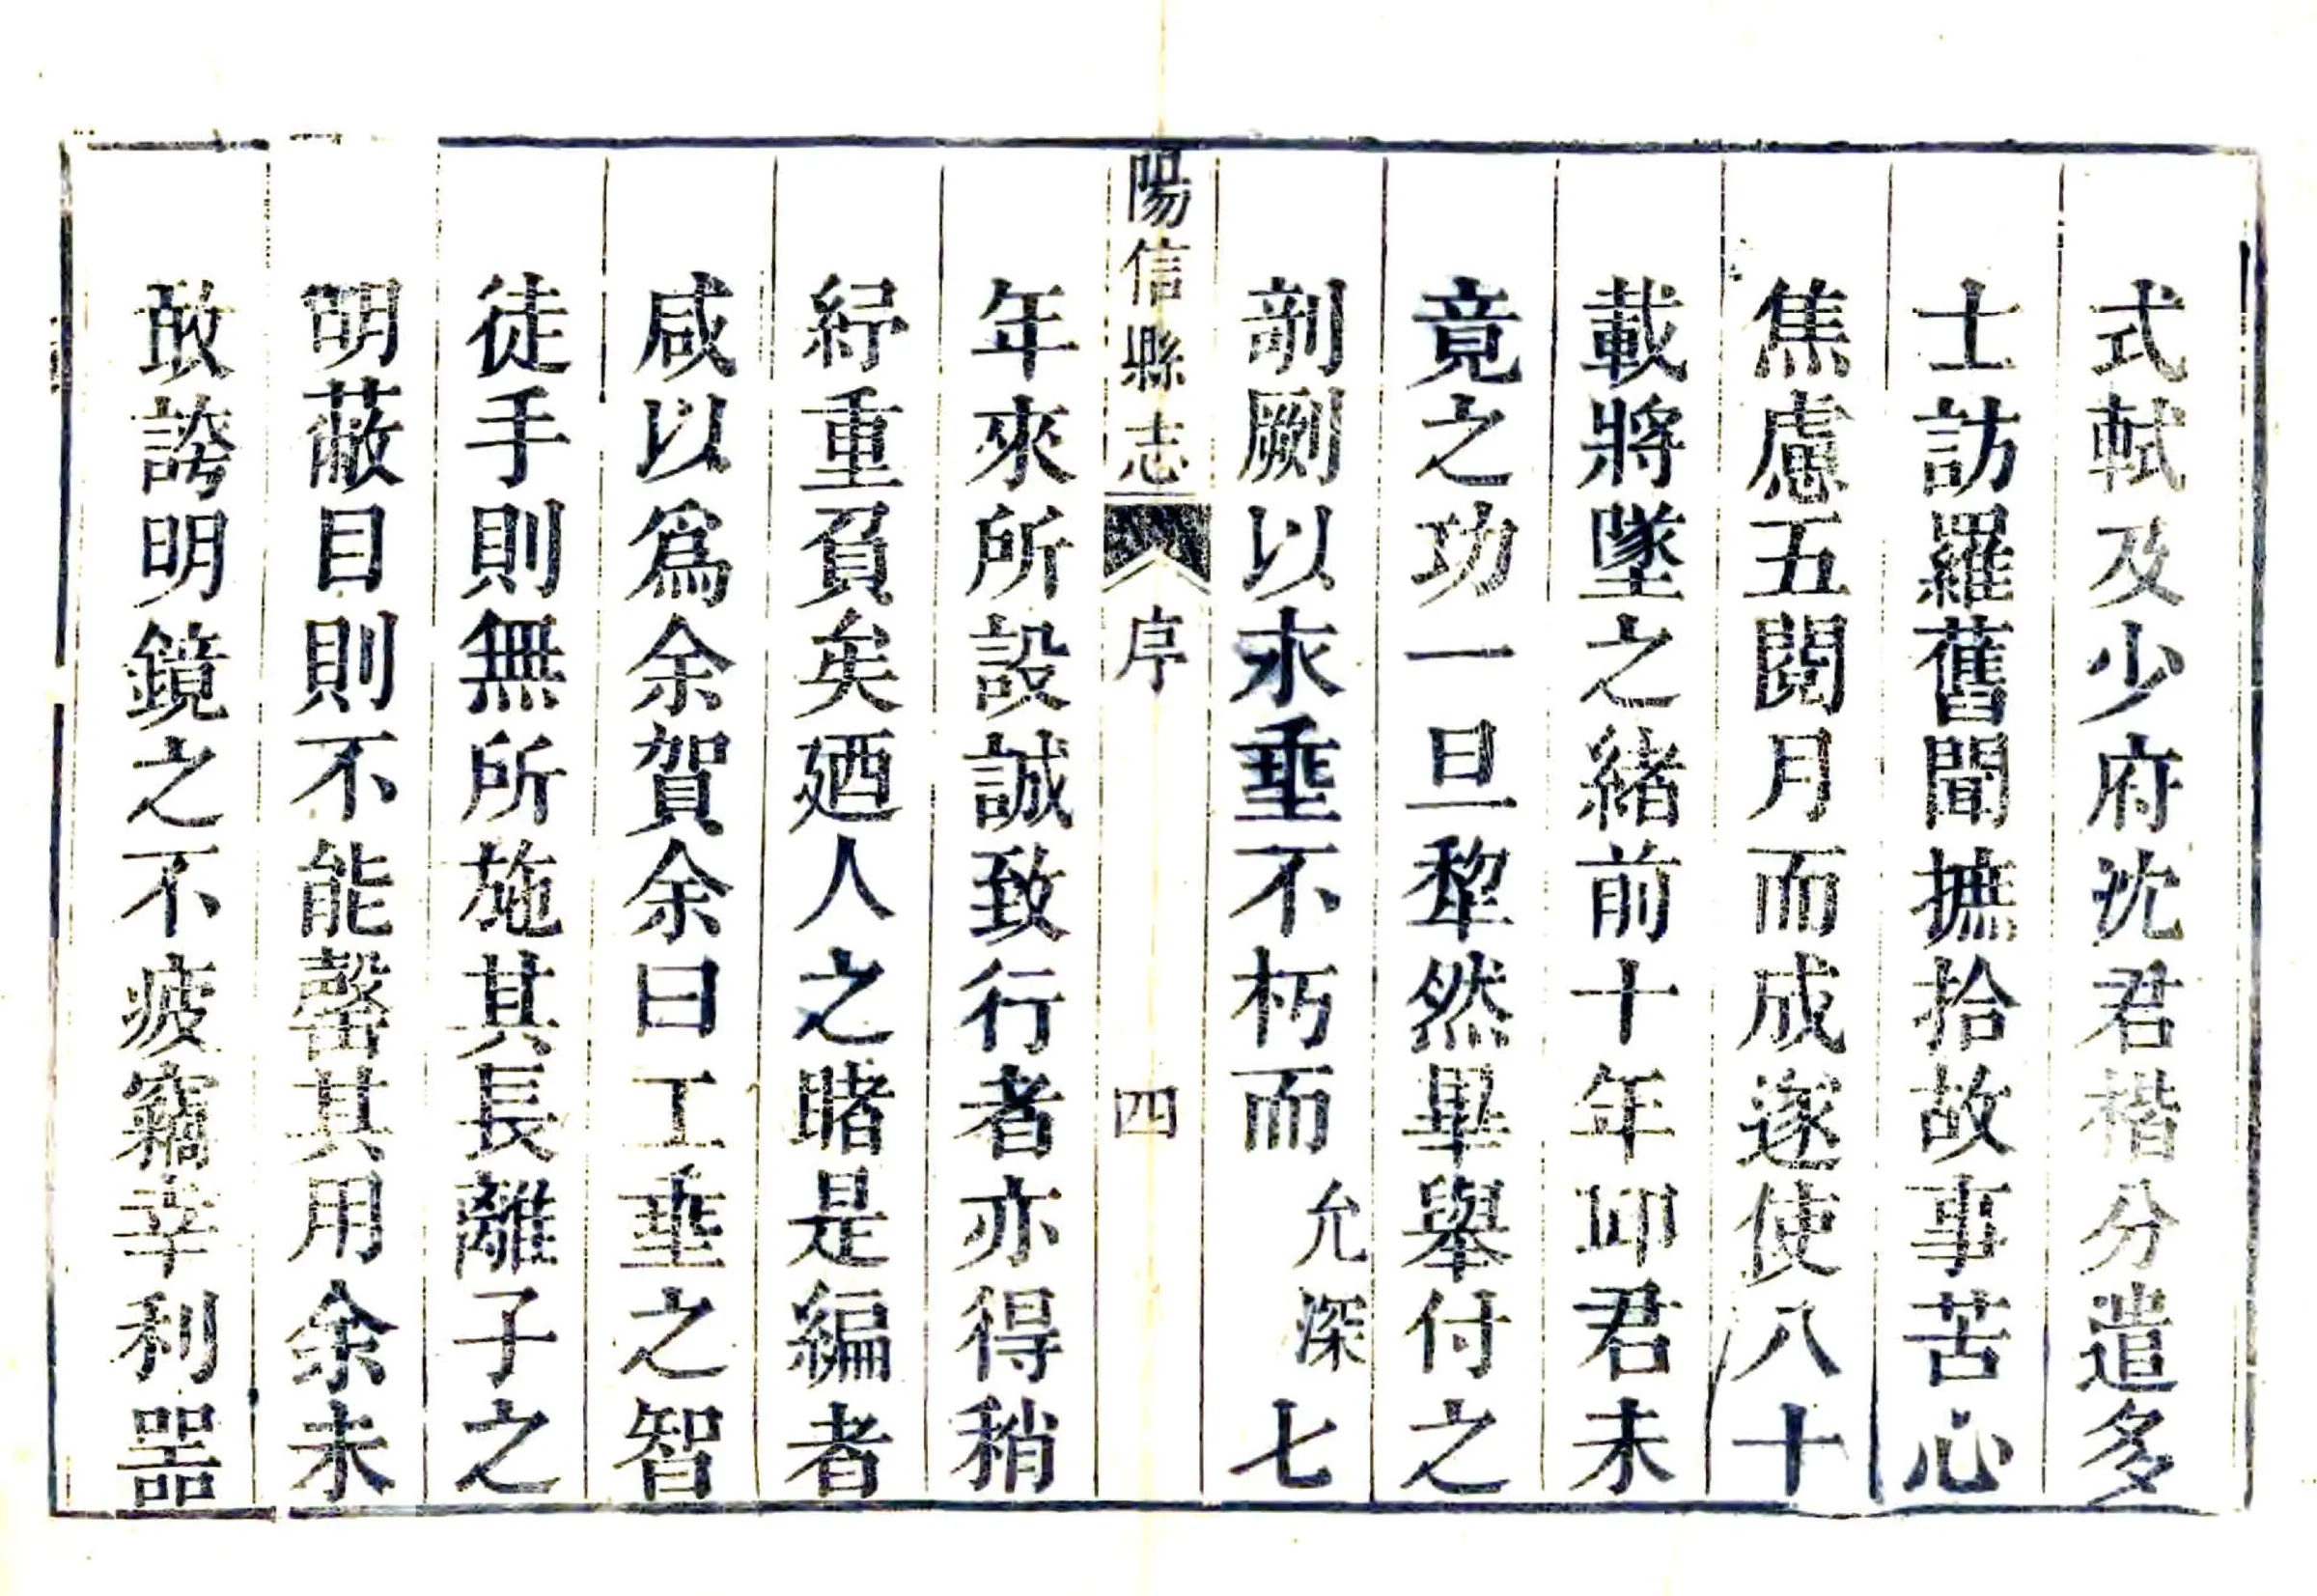 式軾及少府沈君楷分遣多
士訪羅舊聞摭拾故事苦心
焦慮五閱月而成遂使八十
載將墜之緒前十年邱君未
竟之功一旦犂然畢舉付之
剞劂以求垂不朽而允深七
陽信縣志 序 四
年來所設誠致行者亦得稍
紓重負矣廼人之睹是編者
咸以爲余賀余曰工垂之智
徒手則無所施其長離子之
明蔽目則不能罄其用余未
敢誇明鏡之不疲竊幸利噐